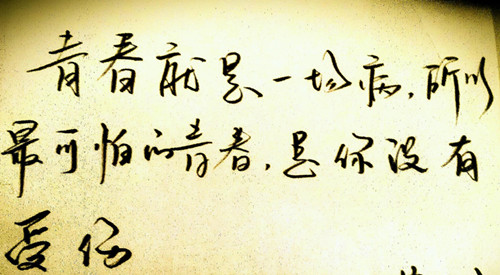 青春就是一场病，所以
最可怕的青春，是你没有
受伤